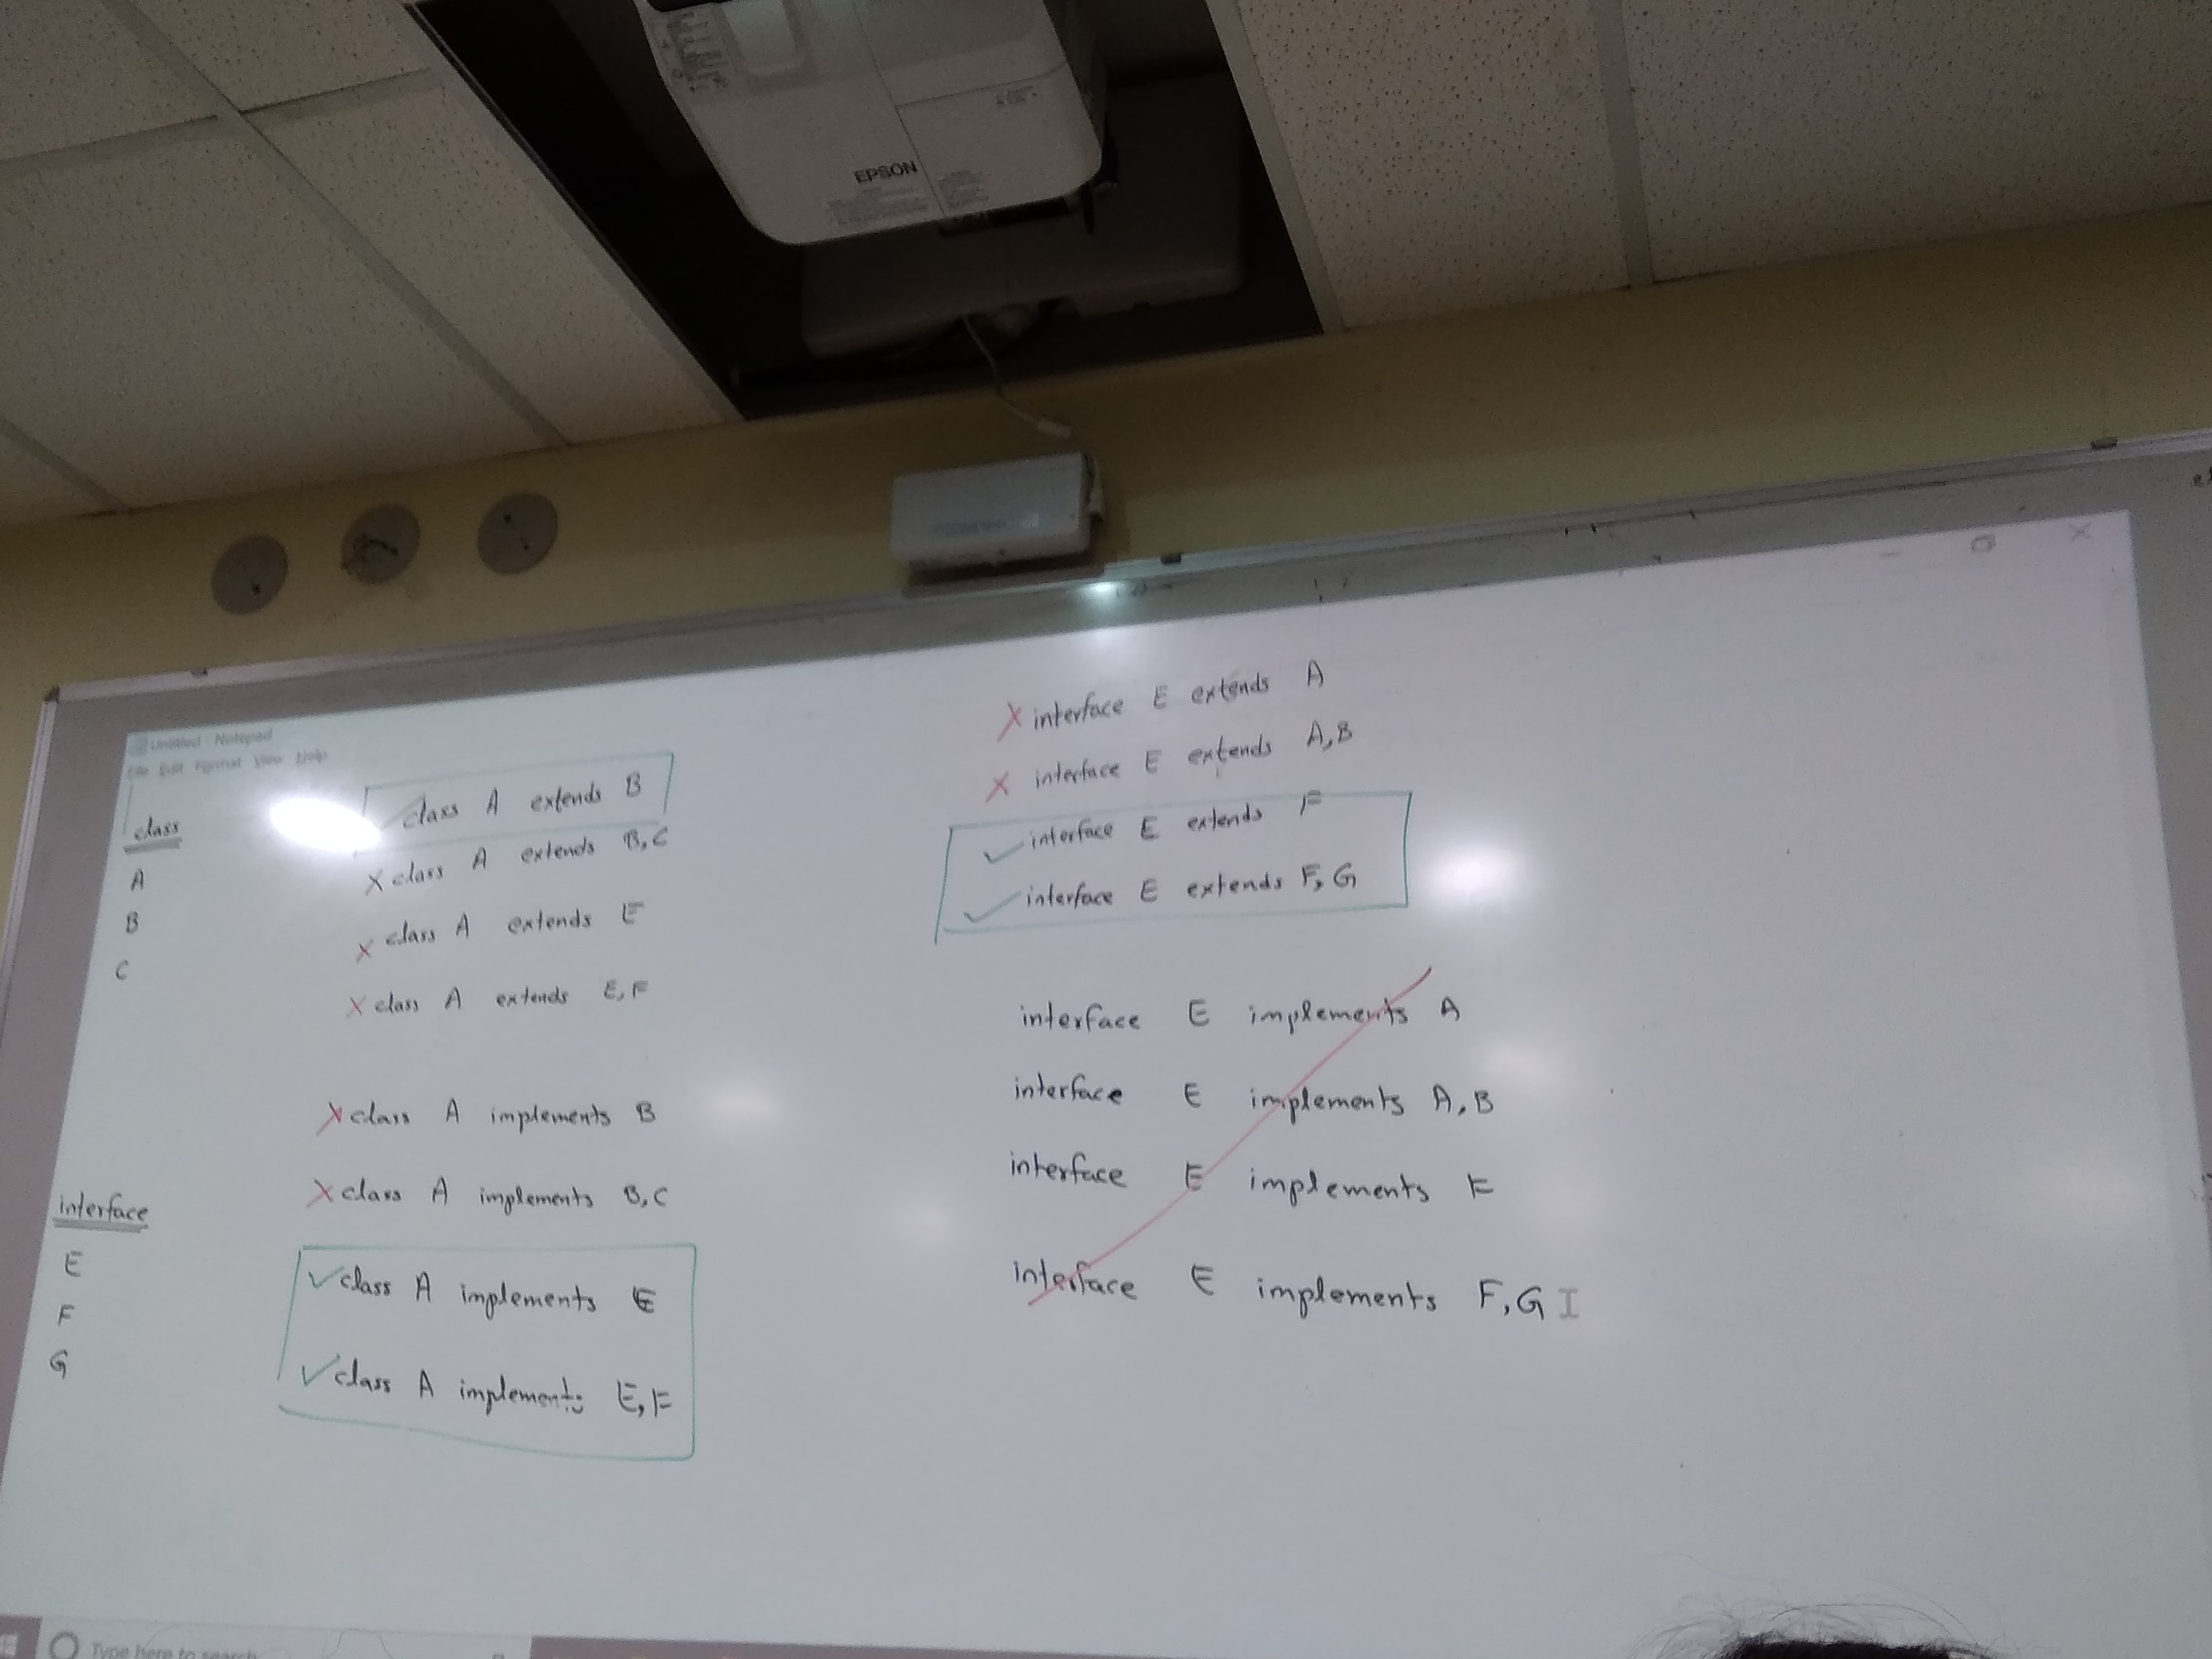 EPSON
Untitled - Notepad
File Edit Format View Help
class
A
B
C
interface
E
F
G
✓ class A extends B
X class A extends B, C
X class A extends E
X class A extends E, F
X class A implements B
X class A implements B, C
✓ class A implements E
✓ class A implements E, F
X interface E extends A
X interface E extends A, B
✓ interface E extends F
✓ interface E extends F, G
interface E implements A
interface E implements A, B
interface E implements F
interface E implements F, G
Type here to search